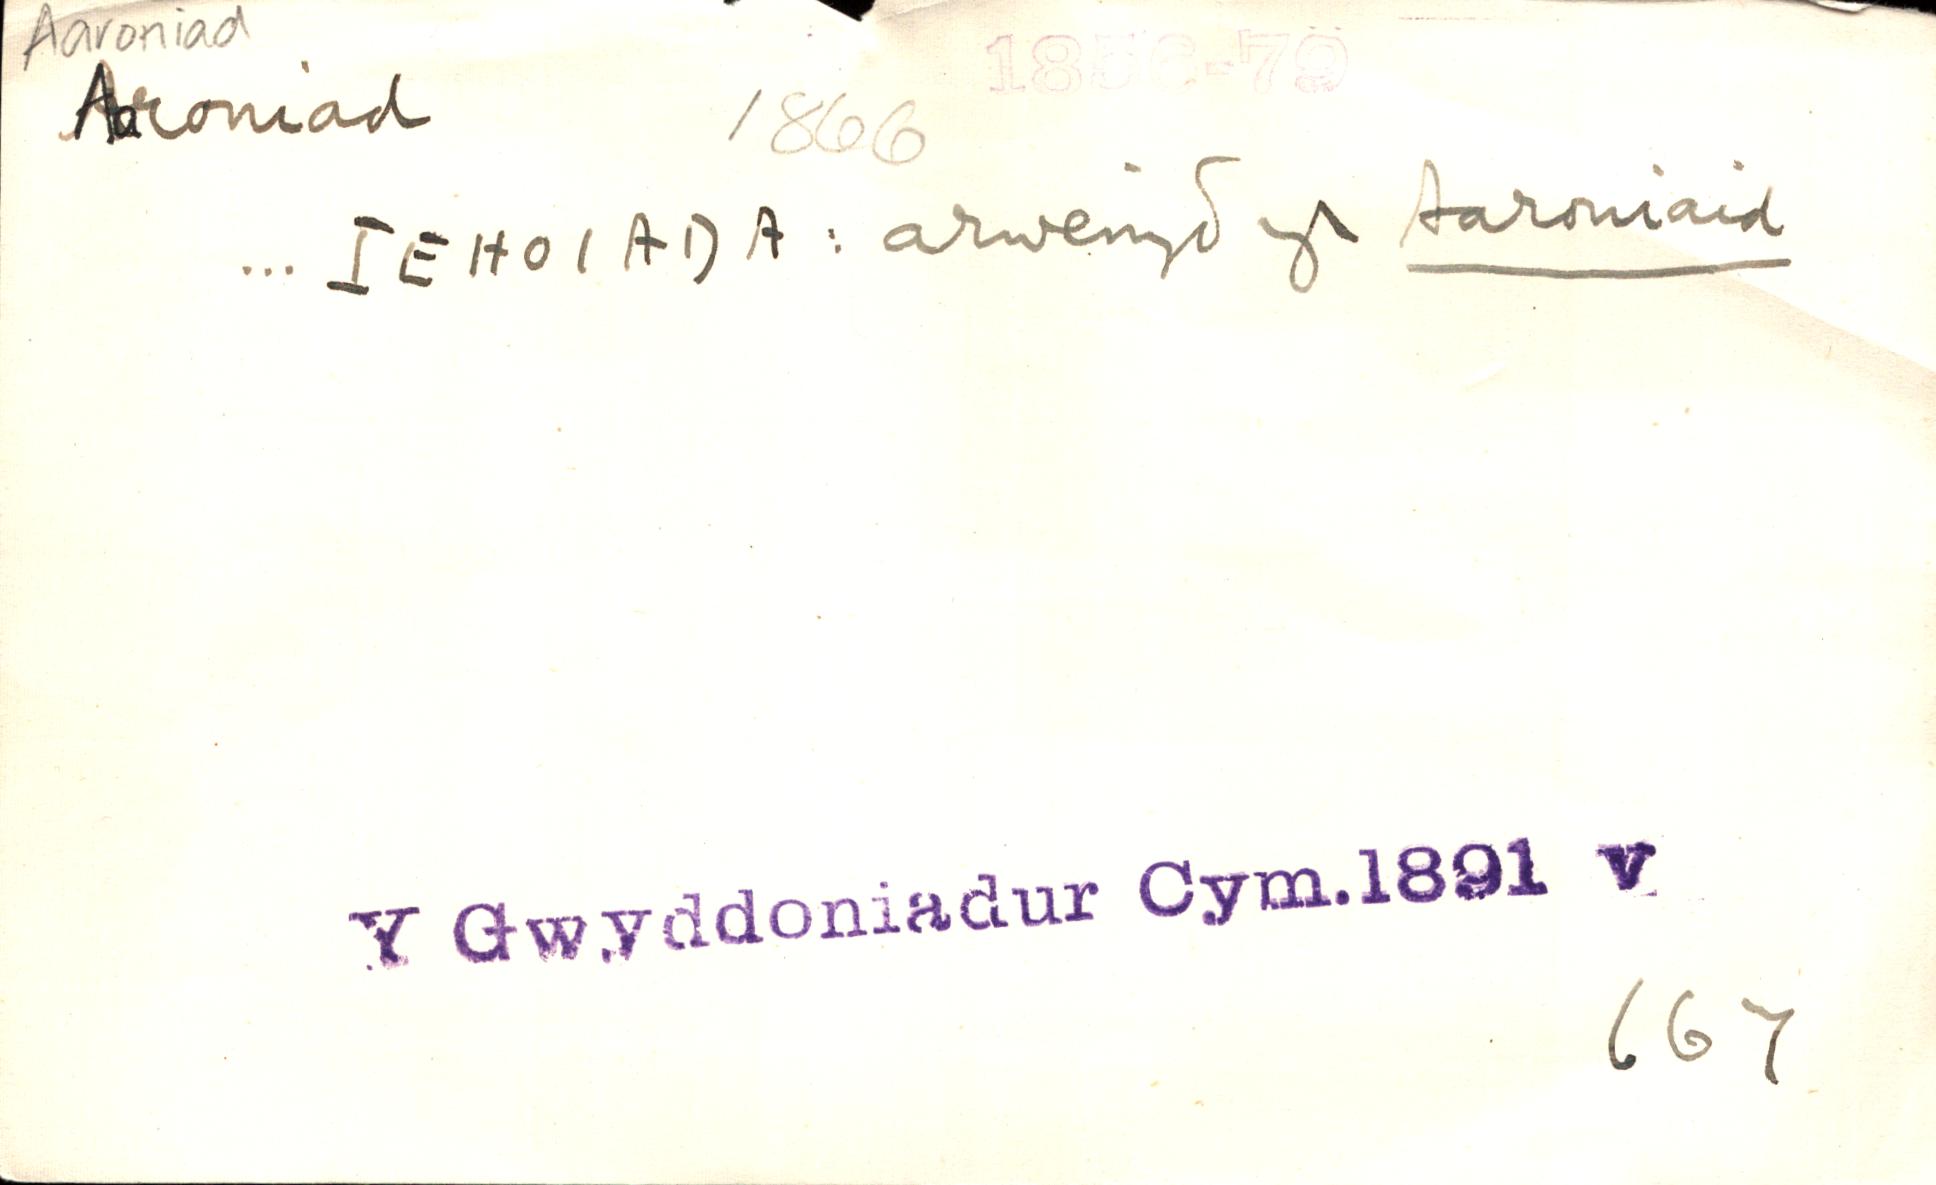 Aaroniad
1856-79
Aaroniad
1866
... IEHOIADA: arweinyδ yr Aaroniaid
Y Gwyddoniadur Cym. 1891 v
667